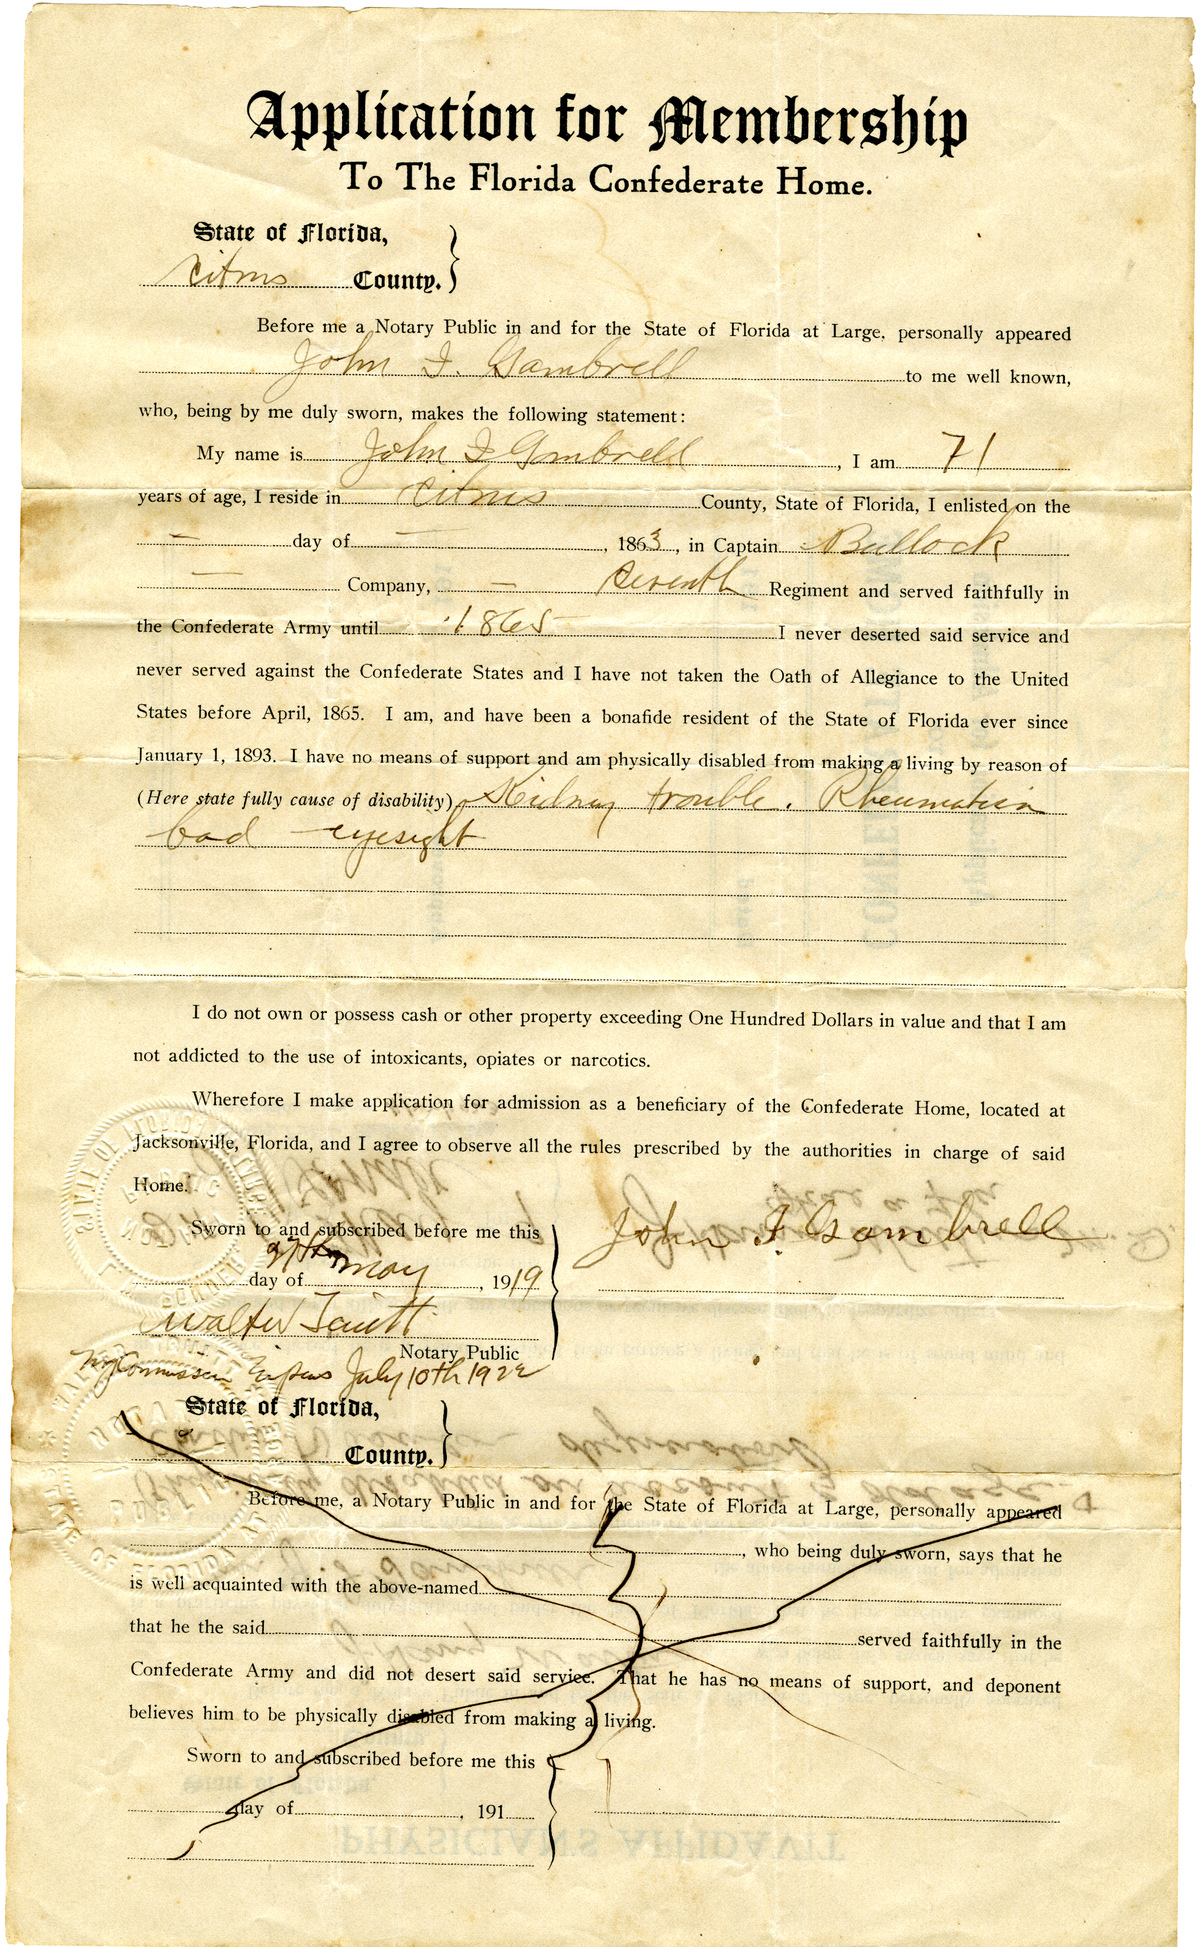 Application for Membership
To The Florida Confederate Home.
State of Florida,
Citrus County.
Before me a Notary Public in and for the State of Florida at Large, personally appeared
John F. Gambrell to me well known,
who, being by me duly sworn, makes the following statement:
My name is John F Gambrell, I am 71
years of age, I reside in Citrus County, State of Florida, I enlisted on the
— day of —, 1863, in Captain Bullock
— Company, — Seventh Regiment and served faithfully in
the Confederate Army until 1865 I never deserted said service and
never served against the Confederate States and I have not taken the Oath of Allegiance to the United
States before April, 1865. I am, and have been a bonafide resident of the State of Florida ever since
January 1, 1893. I have no means of support and am physically disabled from making a living by reason of
(Here state fully cause of disability) Kidney trouble. Rheumatism
bad eyesight
I do not own or possess cash or other property exceeding One Hundred Dollars in value and that I am
not addicted to the use of intoxicants, opiates or narcotics.
Wherefore I make application for admission as a beneficiary of the Confederate Home, located at
Jacksonville, Florida, and I agree to observe all the rules prescribed by the authorities in charge of said
Home.
Sworn to and subscribed before me this
John F. Gambrell
27th day of May, 1919
Walter
Notary Public
My Commission Expires July 10th 1922
State of Florida,
County.
Before me, a Notary Public in and for the State of Florida at Large, personally appeared
, who being duly sworn, says that he
is well acquainted with the above-named
that he the said served faithfully in the
Confederate Army and did not desert said service. That he has no means of support, and deponent
believes him to be physically disabled from making a living.
Sworn to and subscribed before me this
day of , 191
PHYSICIAN'S AFFIDAVIT